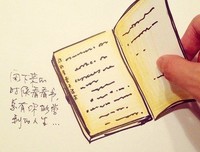 闲下来的
时候看看书,
总有你
到的人生...